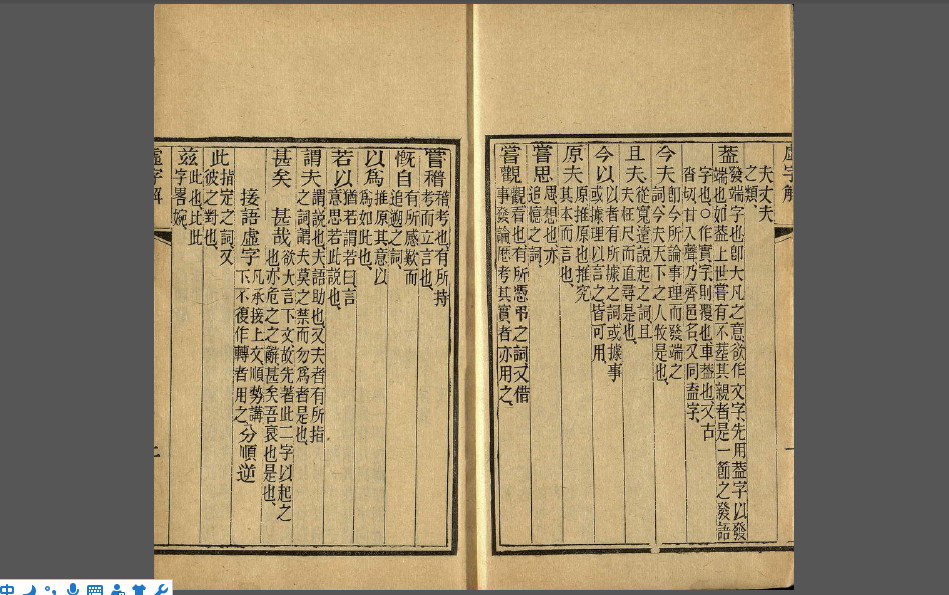 虛字解
夫丈夫
之類、
盖
發端字也卽大凡之意欲作文字先用盖字以發
端也如盖上世嘗有不塟其親者是一節之發語
字也○作實字則覆也車盖也又古
沓切甘入聲乃齊邑名又同盍字、
今夫
卽今所論事理而發端之
詞今夫天下之人牧是也、
且夫
從寬遠說起之詞且
夫枉尺而直尋是也、
今以
以者有所據之詞或據事
或據理以言之皆可用、
原夫
原推原也推究
其本而言也、
嘗思
思想也亦
追憶之詞、
嘗觀
觀看也有所憑弔之詞又借
事發論歷考其實者亦用之、
嘗稽
稽考也有所持
考而立言也、
慨自
有所感歎而
追遡之詞、
以爲
推原其意以
爲如此也、
若以
猶若謂若曰言
意思若此說也、
謂夫
謂說也夫語助也又夫者有所指
之詞謂夫莫之禁而勿爲者是也、
甚矣 甚哉
欲大言下文故先著此二字以起之
也亦危之之辭甚矣吾衰也是也、
接語虛字
凡承接上文順勢講
下不復作轉者用之
分順逆
此
指定之詞又
彼之對也、
茲
此也比此
字畧婉、
虛字解
中